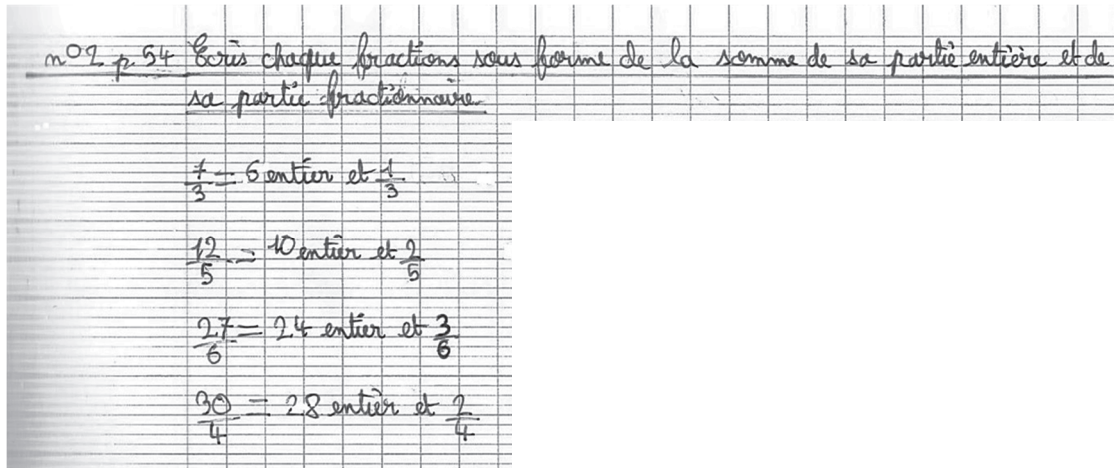 n°2 p 54 Ecris chaque fractions sous forme de la somme de sa partie entière et de
sa partie fractionnaire
7/3 = 6 entier et 1/3
12/5 = 10 entier et 2/5
27/6 = 24 entier et 3/6
30/4 = 28 entier et 2/4